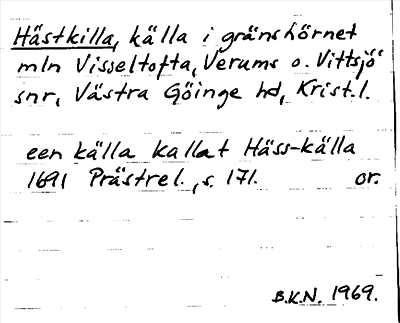 Hästkilla, källa i gränshörnet
mln Visseltofta, Verums o. Vittsjö
snr, Västra Göinge hd, Krist. l.
een källa kallat Häss-källa
1691 Prästrel., s. 171. or.
B.K.N. 1969.